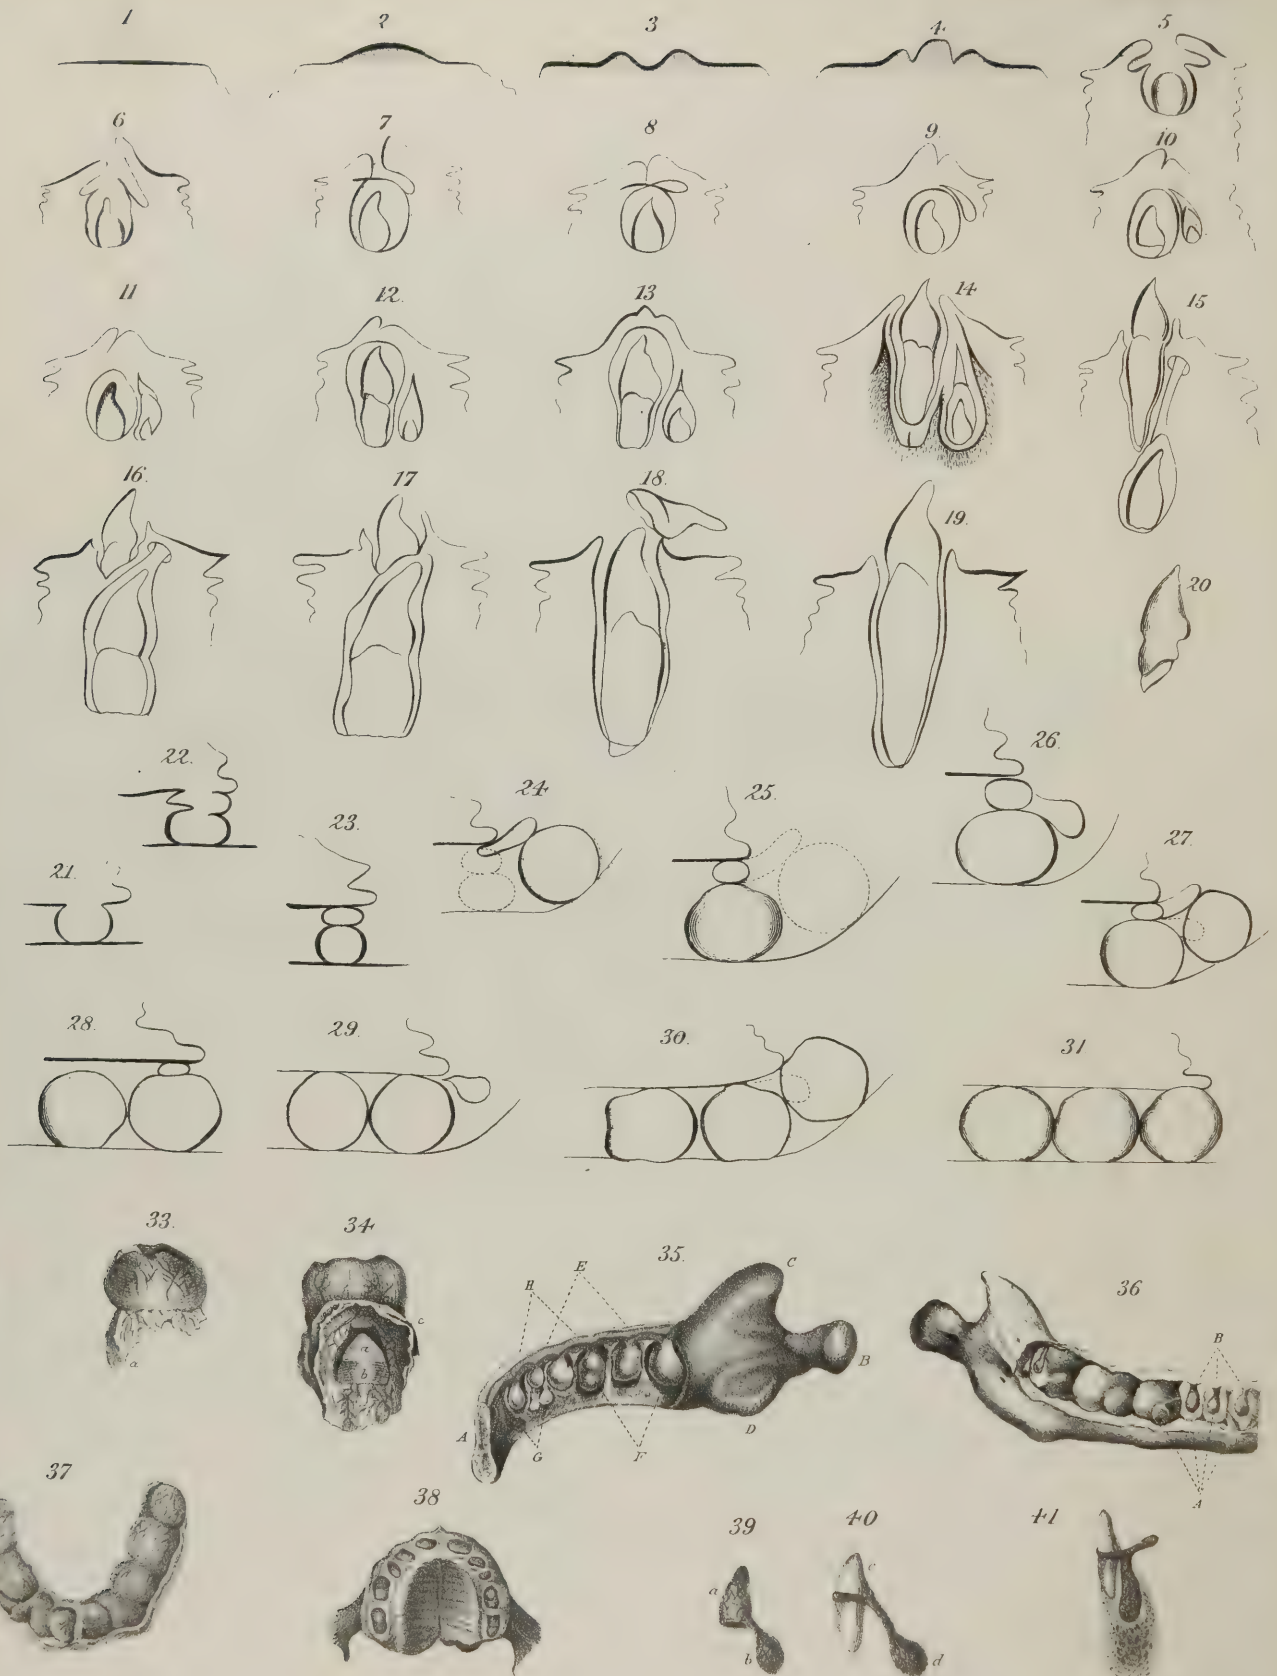 1 2 3 4 5
6 7 8 9 10
11 12. 13 14 15
16. 17 18. 19. 20
22. 24 25. 26.
21. 23. 27.
28. 29. 30. 31
33. 34 35. 36
a
a b c
H E C B A G F D
B A
37 38 39 40 41
a b
c d